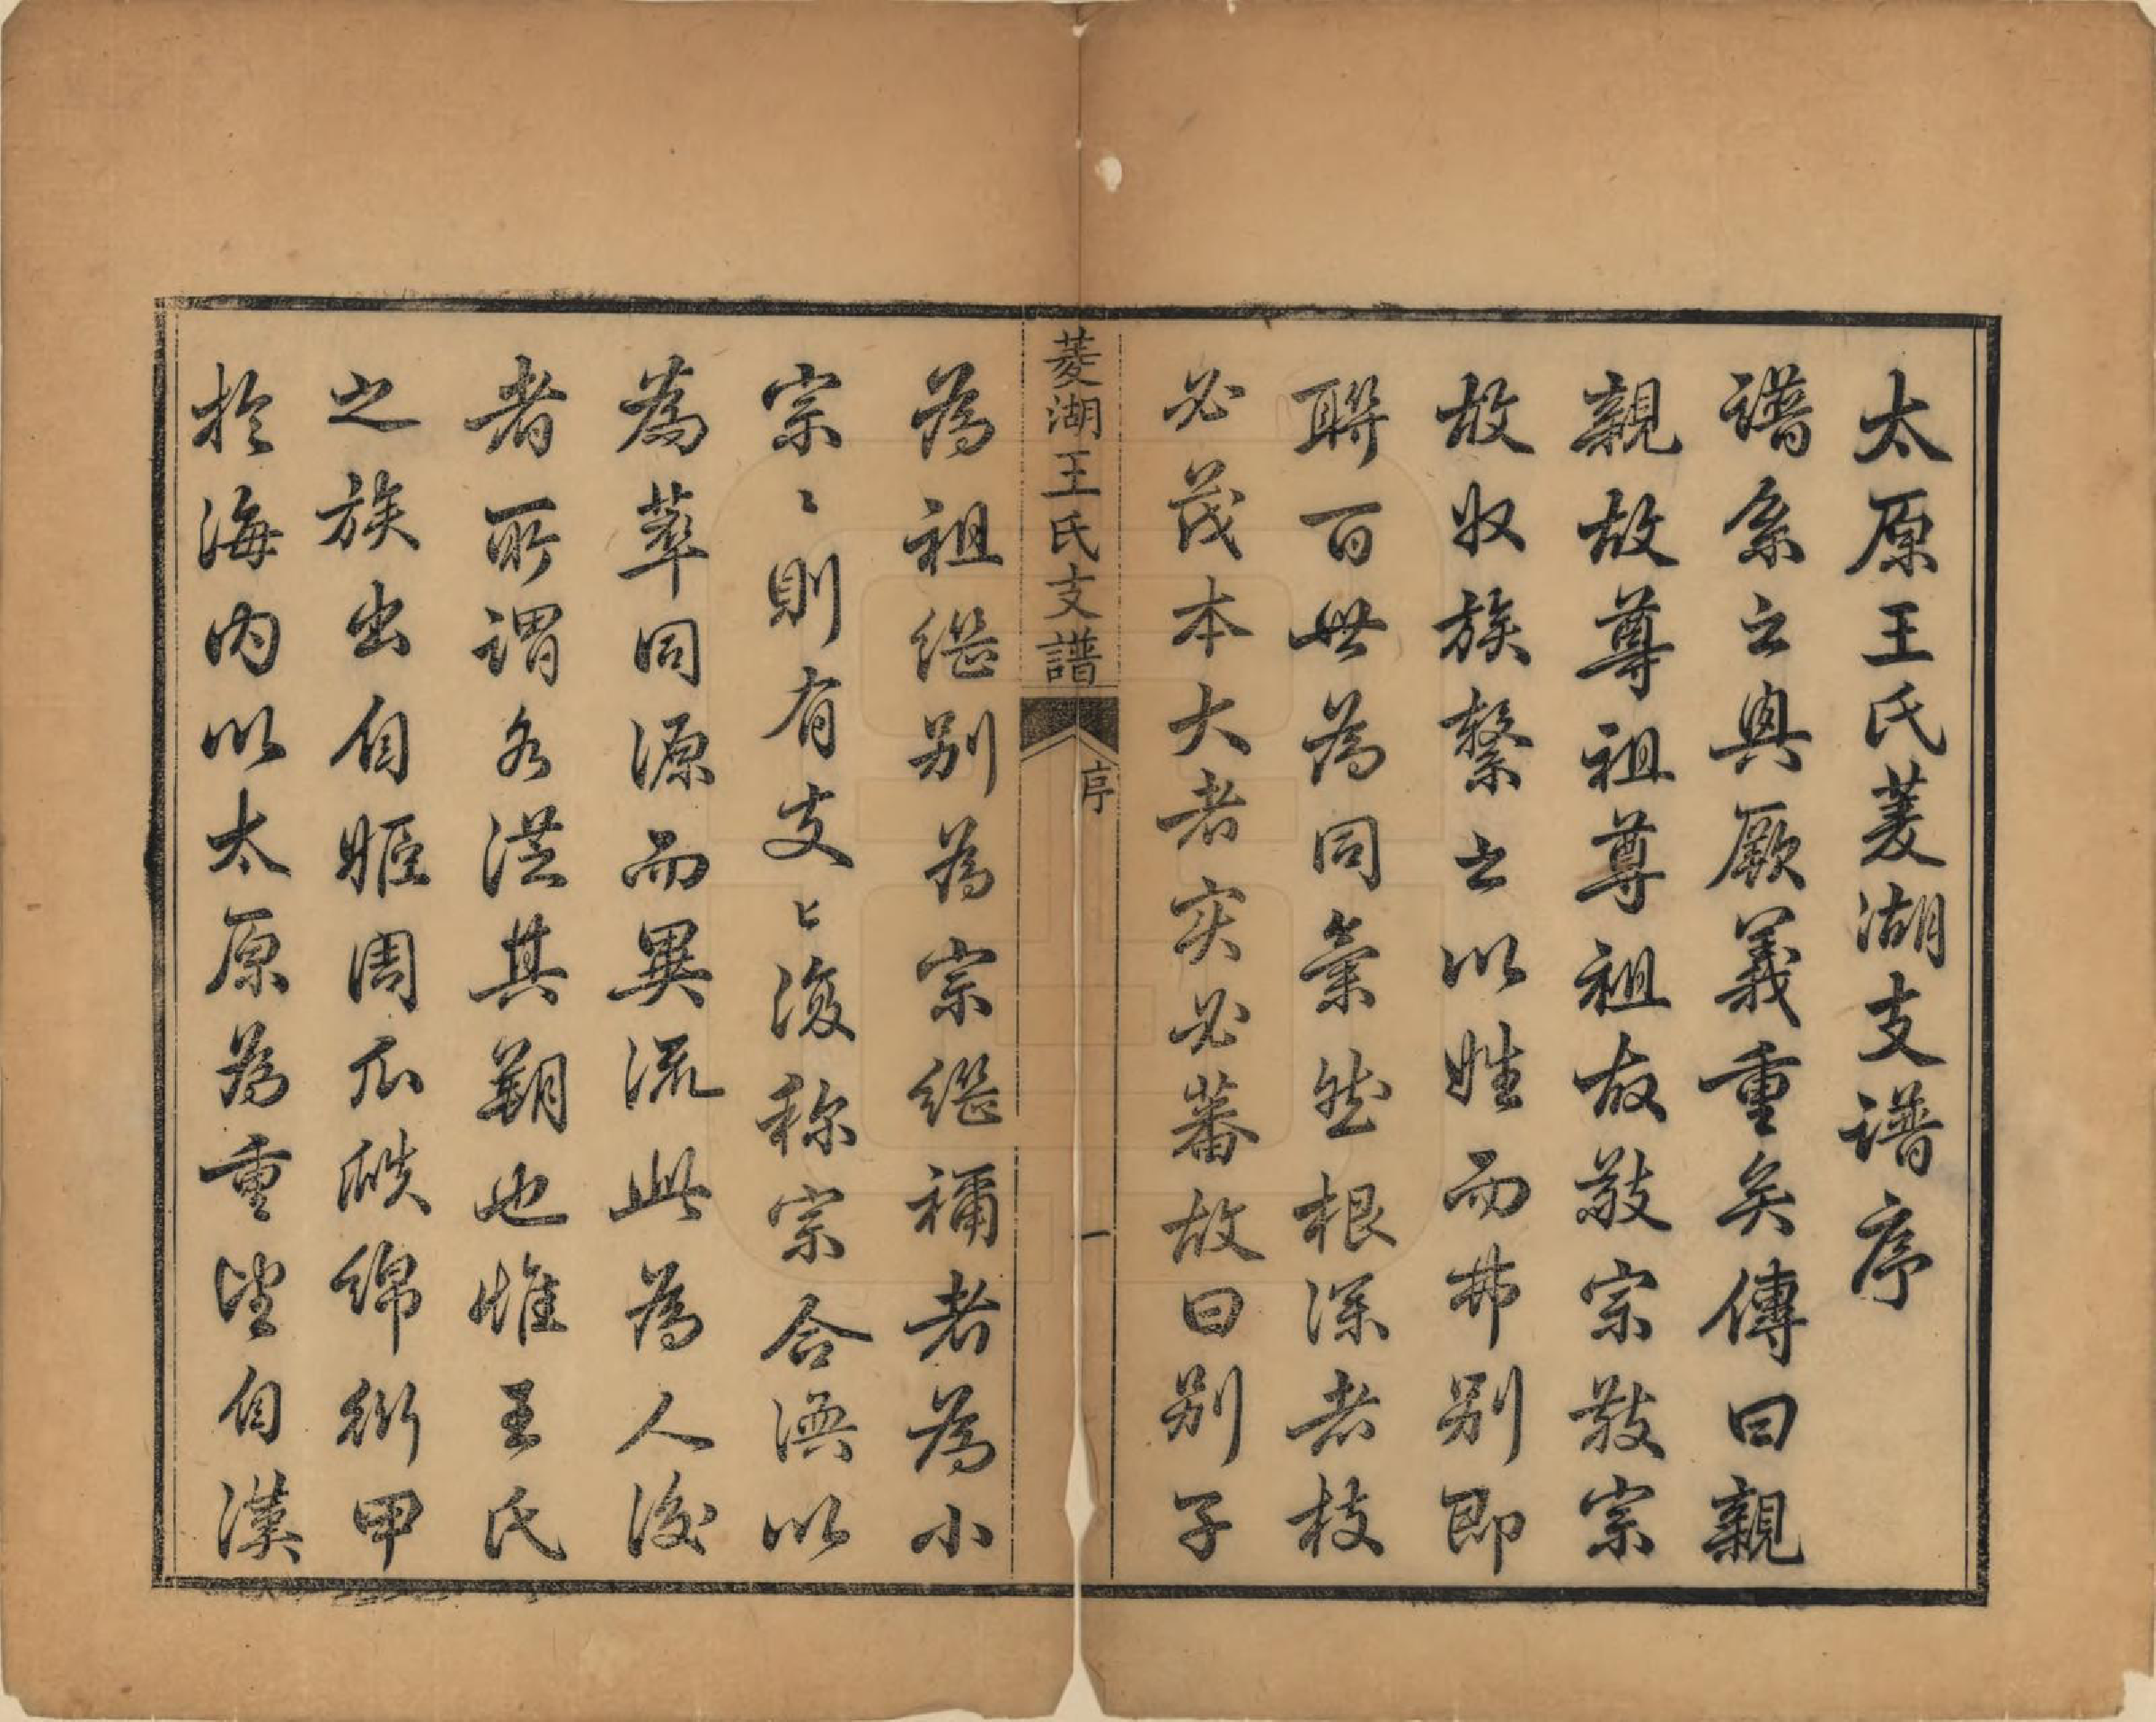 太原王氏菱湖支譜序
譜系之興厥義重矣傳曰親
親故尊祖尊祖故敬宗敬宗
故收族繫之以姓而弗別即
聯百世為同氣然根深者枝
必茂本大者实必蕃故曰別子
菱湖王氏支譜
序
一
為祖继別為宗继禰者為小
宗〻則有支〻復称宗合渙以
為萃同源而異流此為人後
者所谓各洪其朔也惟王氏
之族出自姬周瓜瓞绵衍甲
於海内以太原為重望自漢